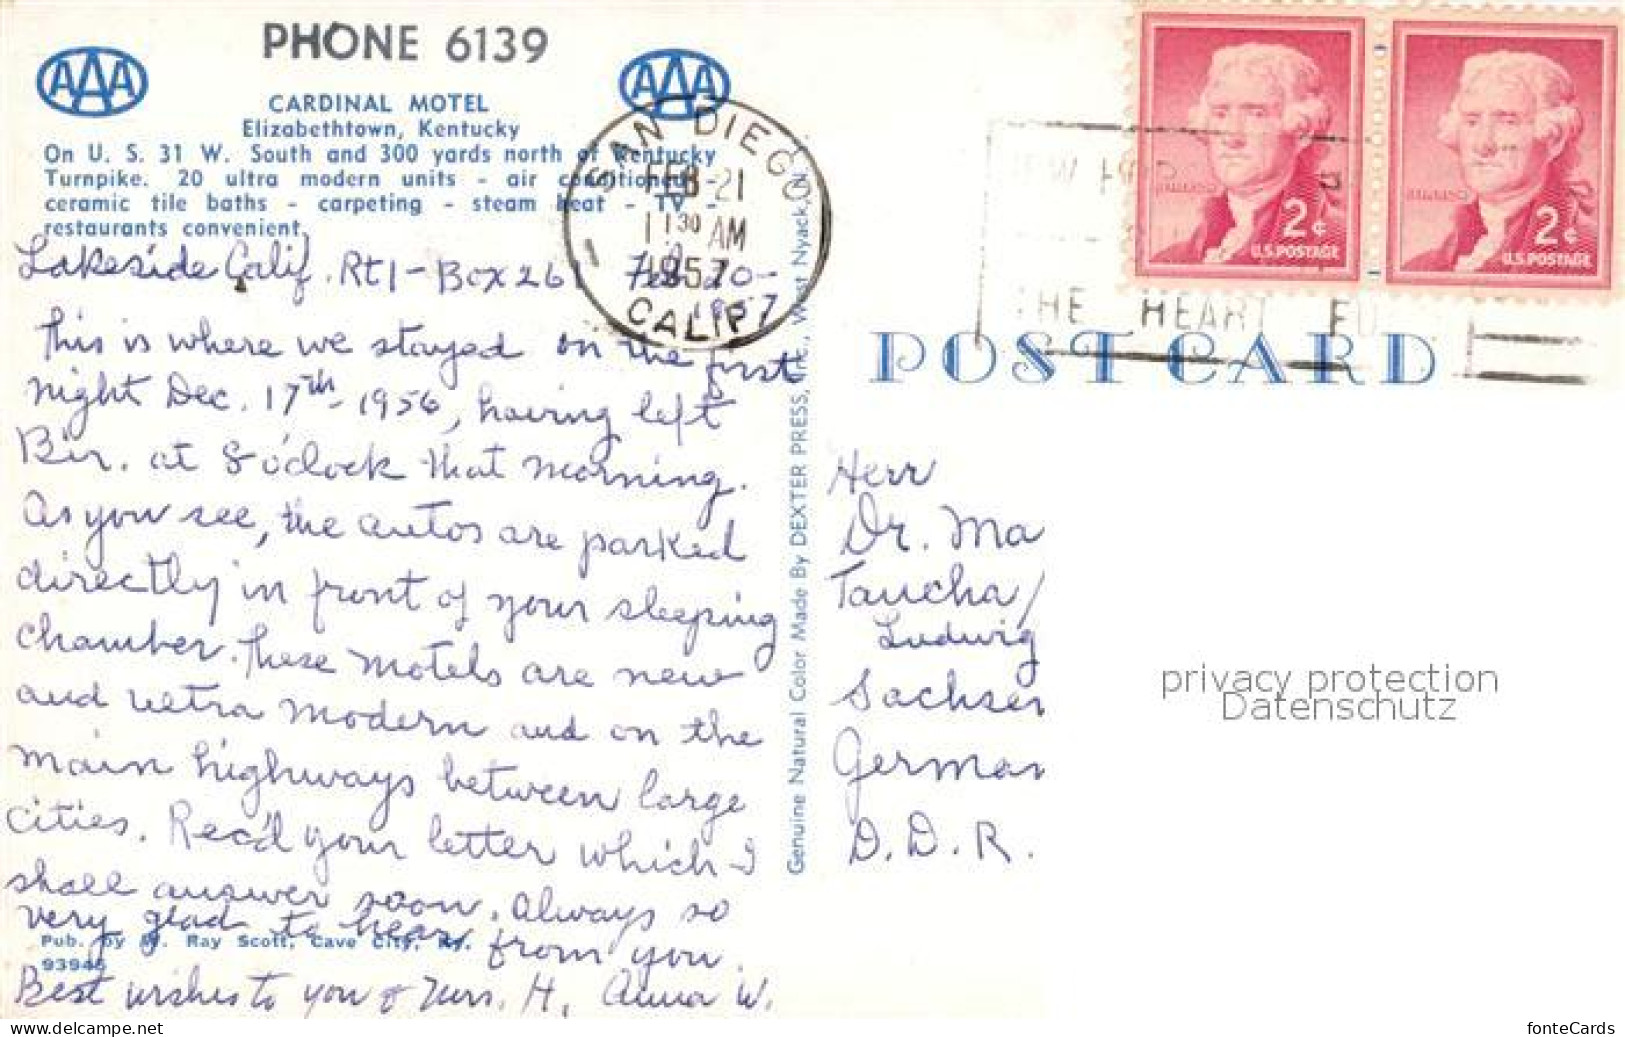 PHONE 6139
AAA
AAA
CARDINAL MOTEL
Elizabethtown, Kentucky
On U. S. 31 W. South and 300 yards north of Kentucky
Turnpike. 20 ultra modern units - air conditioned -
ceramic tile baths - carpeting - steam heat - TV -
restaurants convenient.
Lakeside Calif. Rt 1 - Box 261 Feb 20 -
1957
This is where we stayed on the first
night Dec. 17th - 1956, having left
Bir. at 8 o'clock that morning.
As you see, the autos are parked
directly in front of your sleeping
chamber. These motels are new
and ultra modern and on the
main highways between large
cities. Rec'd your letter which I
shall answer soon. Always so
very glad to hear from you.
Pub. by W. Ray Scott, Cave City, Ky.
93945
Best wishes to you & Mrs. H. Anna W.
Genuine Natural Color Made By DEXTER PRESS, Inc., West Nyack, N
SAN DIEGO
FEB 21
11 30 AM
1957
CALIF
THE HEART FU
2¢
U.S. POSTAGE
2¢
U.S. POSTAGE
POST CARD
Herr
Dr. Ma
Taucha/
Ludwig
Sachsen
German
D.D.R.
privacy protection
Datenschutz
www.delcampe.net
fonteCards